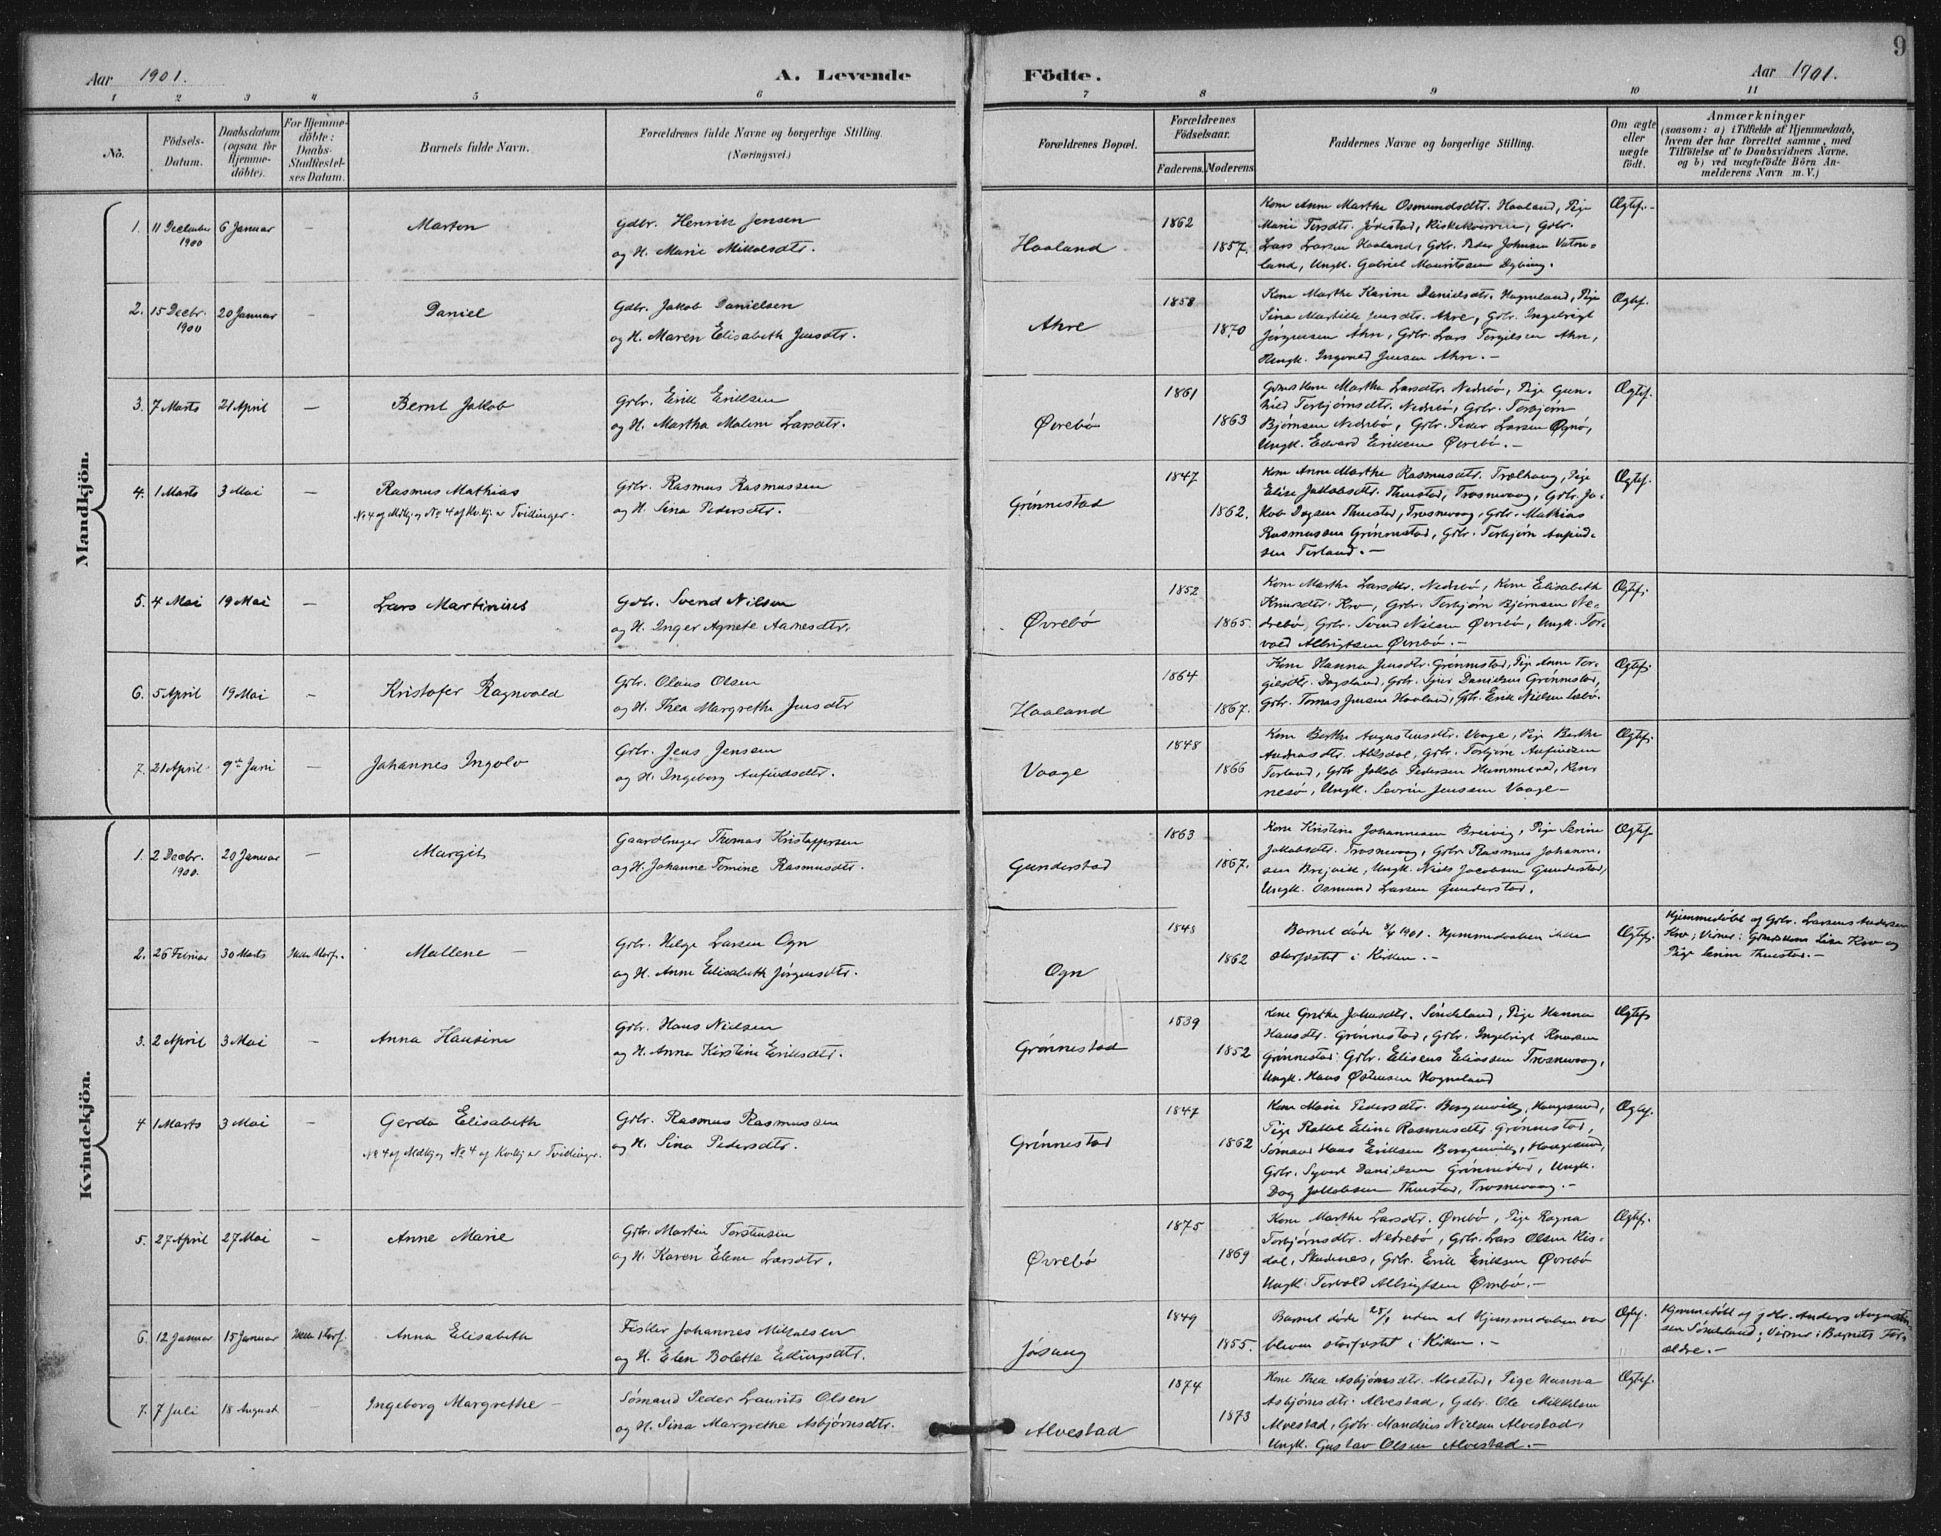 9
Aar 1901.
A. Levende Födte.
Aar 1901.
1 2 3 4 5 6 7 8 9 10 11
No.
Födsels-Datum.
Daabsdatum (ogsaa for Hjemme-döbte).
For Hjemme-döbte: Daabs-Stadfæstel-ses Datum.
Barnets fulde Navn.
Forældrenes fulde Navne og borgerlige Stilling. (Næringsvei.)
Forældrenes Bopæl.
Forældrenes Födselsaar.
Faderens. Moderens.
Faddernes Navne og borgerlige Stilling.
Om ægte eller uægte födt.
Anmærkninger
(saasom: a) i Tilfælde af Hjemmedaab,
hvem der har forrettet samme, med
Tilföielse af to Daabsvidners Navne,
og b) ved uægtefödte Börn An-
melderens Navn m. V.)
Mandkjön.
1. 11 December 1900 6 Januar – Marton
Gdbr. Henrik Jensen
og H. Marie Mikalsdtr.
Haaland 1862 1857.
Kone Anne Marthe Osmundsdtr. Haaland, Pige
Lars Larsen Haaland, Gbr. Peder Johnsen Vatna-
land, Ungk. Gabriel Mauritssen Dybing.
Ægtef.
2. 15 Decbr. 1900 20 Januar – Daniel
Gdbr. Jakob Danielsen
og H. Maren Elisabeth Jensdtr.
Ahre 1858 1870
Kone Marthe Karine Danielsdtr. Hogneland, Pige
Sina Mathilde Jensdtr. Ahre, Gbr. Ingebrigt
Jørgensen Ahre, Gbr. Lars Torgilsen Ahre,
Ungk. Ingvald Jensen Ahre. –
Ægtef.
3. 7 Marts 21 April – Bernt Jakob
Gbr. Erik Eriksen
og H. Martha Malene Larsdtr.
Øvrebø 1861 1863
Martha Larsdtr. Nedrebø, Pige Gun-
hild Torbjørnsdtr. Nedrebø, Gbr. Torbjørn
Bjørnsen Nedrebø, Gbr. Peder Larsen Øgnø,
Ungk. Edvard Eriksen Øvrebø. –
Ægtef.
4. 1 Marts 3 Mai – Rasmus Mathias
No 4 af Mdkj. og No 4 af Kvkj. er Tvillinger.
Gbr. Rasmus Rasmussen
og H. Sina Pedersdtr.
Grønnestad 1847 1862.
Kone Anne Marthe Rasmusdtr. Trælhaug, Pige
Elise Jakobsdtr. Thuestad, Trosnevaag, Gbr. Ja-
kob Dagsen Thuestad, Trosnevaag, Gbr. Mathias
Rasmussen Grønnestad, Gbr. Torbjørn Anfind-
sen Torland. –
Ægtef.
5. 4 Mai 19 Mai – Lars Martinius
Gbr. Svend Nilsen
og H. Inger Agnete Aanesdtr.
Øvrebø 1852 1865.
Kone Marthe Larsdtr. Nedrebø, Kone Elisabeth
Knudsdtr. Kro, Gbr. Torbjørn Bjørnsen Ne-
drebø, Gbr. Svend Nilsen Øvrebø, Ungk. Tor-
vald Albrigtsen Øvrebø. –
Ægtef.
6. 5 April 19 Mai – Kristofer Ragnvald
Gbr. Olaus Olsen
og H. Thea Margrethe Jensdtr
Haaland 1864 1867.
Kone Hanna Jensdtr. Grønnestad, Pige Anne Tor-
gilsdtr. Dagsland, Gbr. Danielsen Grønnestad,
Gbr. Tomas Jensen Haaland, Gbr. Erik Nielsen
Ægtef.
7. 21 April 9de Juni – Johannes Ingolv
Gbr. Jens Jensen
og H. Ingeborg Anfindsdtr.
Vaage 1848 1866
Kone Berthe Augustinusdtr. Vaage, Pige Berthe
Andreasdtr. Alsdal, Gbr. Torbjørn Anfindsen
Torland, Gbr. Jakob Pedersen Hummervad, Ren-
nesø, Ungk. Sevrin Jenssen Vaage –
Ægtef.
Kvindekjön.
1. 2 Decbr. 1900. 20 Januar – Margit
Gaardbruger Thomas Kristoppersen
og H. Johanne Tomine Rasmusdtr.
Gunderstad 1863 1867.
Kone Kristine Johannesen Breivig, Pige Serine
Jakobsdtr. Trosnevaag, Gbr. Rasmus Johanne-
sen Breivik, Ungk. Niels Jacobsen Gunderstad,
Ungk. Osmund Larsen Gunderstad.
Ægtef.
2. 26 Februar 30 Marts Ikke Storf. Mallene –
Gbr. Helge Larsen Ogn
og H. Anne Elisabeth Jørgensdtr.
Ogn 1848 1862
Barnet døde 1901. Hjemmedaaben ikke
stadfæstet i Kirken. –
Ægtef.
Hjemmedøbt af Gbr. Andersen
Kro; Vidner: Lisa Kro og
Pige Serine Thuestad. –
3. 2 April 3 Mai – Anna Hansine
Gbr. Hans Nielsen
og H. Anna Kirstine Eriksdtr.
Grønnestad 1839 1852
Kone Grethe Johnsdtr. Sørdeland, Pige Hanna
Hansdtr. Grønnestad, Gbr. Ingebrigt Knudsen
Grønnestad, Gbr. Elisens Eliassen Trosnevaag,
Ungk. Hans Østensen Hogneland
Ægtef.
4 1 Marts 3 Mai – Gerda Elisabeth
No 4 af Mdkj. og No 4 af Kvkj. er Tvillinger.
Gbr. Rasmus Rasmussen
og H. Sina Pedersdtr.
Grønnestad 1847 1862
Kone Marie Pedersdtr. Haugesund,
Pige Rakel Eline Rasmusdtr. Grønnestad,
Sømand Hans Eriksen Haugesund,
Gbr. Syvert Danielsen Grønnestad, Ungk.
Dag Jakobsen Thuestad, Trosnevaag. –
Ægtef.
5. 27 April 27 Mai – Anne Marie
Gbr. Martin Torstensen
og H. Karen Elene Larsdtr.
Øvrebø 1875 1869
Kone Marthe Larsdtr. Øvrebø, Pige Ragna
Torbjørnsdtr. Nedrebø, Gbr. Lars Olsen Ris-
dal, Skudenes, Gbr. Erik Eriksen Øvrebø
Ungk. Torvald Albrigtsen Øvrebø. –
Ægtef.
6. 12 Januar 15 Januar Ikke Storf. Anna Elisabeth
Fisker Johannes Mikalsen
og H. Elen Bolette Ellingsdtr.
Jøsang 1849 1855.
Barnet døde 25/1 uden at Hjemmedaaben var
bleven stadfæstet i Kirken. –
Ægtef.
Hjemmedøbt af Gbr. Anders Augustin-
sen Sørdeland; Vidner: Barnets For-
ældre. –
7. 7 Juli 18 August – Ingeborg Margrethe –
Sømand Peder Laurits Olsen
og H. Sina Margrethe Asbjørnsdtr.
Alvestad 1874 1873
Kone Thea Asbjørnsdtr. Alvestad, Pige Hanna
Asbjørnsdtr. Alvestad, Gdbr. Ole Mikkelsen
Alvestad, Gbr. Mandius Nielsen Alvestad,
Ungk. Gustav Olsen Alvestad. –
Ægtef.